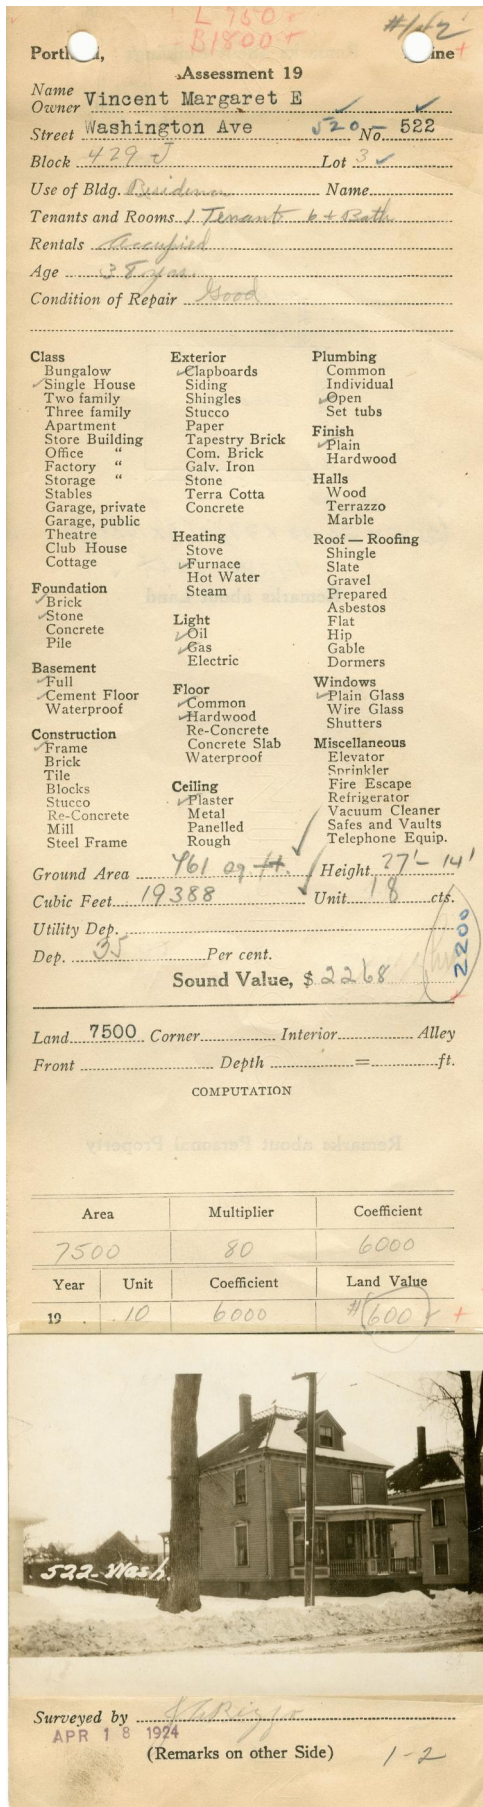 L 750
B1800
#142
Portland, Maine
Assessment 19
Name
Owner Vincent Margaret E
Street Washington Ave 520- No. 522
Block 429 J Lot 3
Use of Bldg. Residence Name
Tenants and Rooms 1 Tenant 6 + Bath
Rentals Occupied
Age 38 yrs.
Condition of Repair Good
Class
Bungalow
Single House
Two family
Three family
Apartment
Store Building
Office "
Factory "
Storage "
Stables
Garage, private
Garage, public
Theatre
Club House
Cottage
Foundation
Brick
Stone
Concrete
Pile
Basement
Full
Cement Floor
Waterproof
Construction
Frame
Brick
Tile
Blocks
Stucco
Re-Concrete
Mill
Steel Frame
Exterior
Clapboards
Siding
Shingles
Stucco
Paper
Tapestry Brick
Com. Brick
Galv. Iron
Stone
Terra Cotta
Concrete
Heating
Stove
Furnace
Hot Water
Steam
Light
Oil
Gas
Electric
Floor
Common
Hardwood
Re-Concrete
Concrete Slab
Waterproof
Ceiling
Plaster
Metal
Panelled
Rough
Plumbing
Common
Individual
Open
Set tubs
Finish
Plain
Hardwood
Halls
Wood
Terrazzo
Marble
Roof — Roofing
Shingle
Slate
Gravel
Prepared
Asbestos
Flat
Hip
Gable
Dormers
Windows
Plain Glass
Wire Glass
Shutters
Miscellaneous
Elevator
Sprinkler
Fire Escape
Refrigerator
Vacuum Cleaner
Safes and Vaults
Telephone Equip.
Ground Area 961 sq ft. Height 27'- 14'
Cubic Feet 19388 Unit 18 cts.
Utility Dep.
Dep. 35 Per cent.
2200
Sound Value, $ 2268
Land 7500 Corner Interior Alley
Front Depth = ft.
COMPUTATION
Area Multiplier Coefficient
7500 80 6000
Year Unit Coefficient Land Value
19 .10 6000 $600
522-Wash.
Surveyed by
APR 18 1924
(Remarks on other Side) 1-2